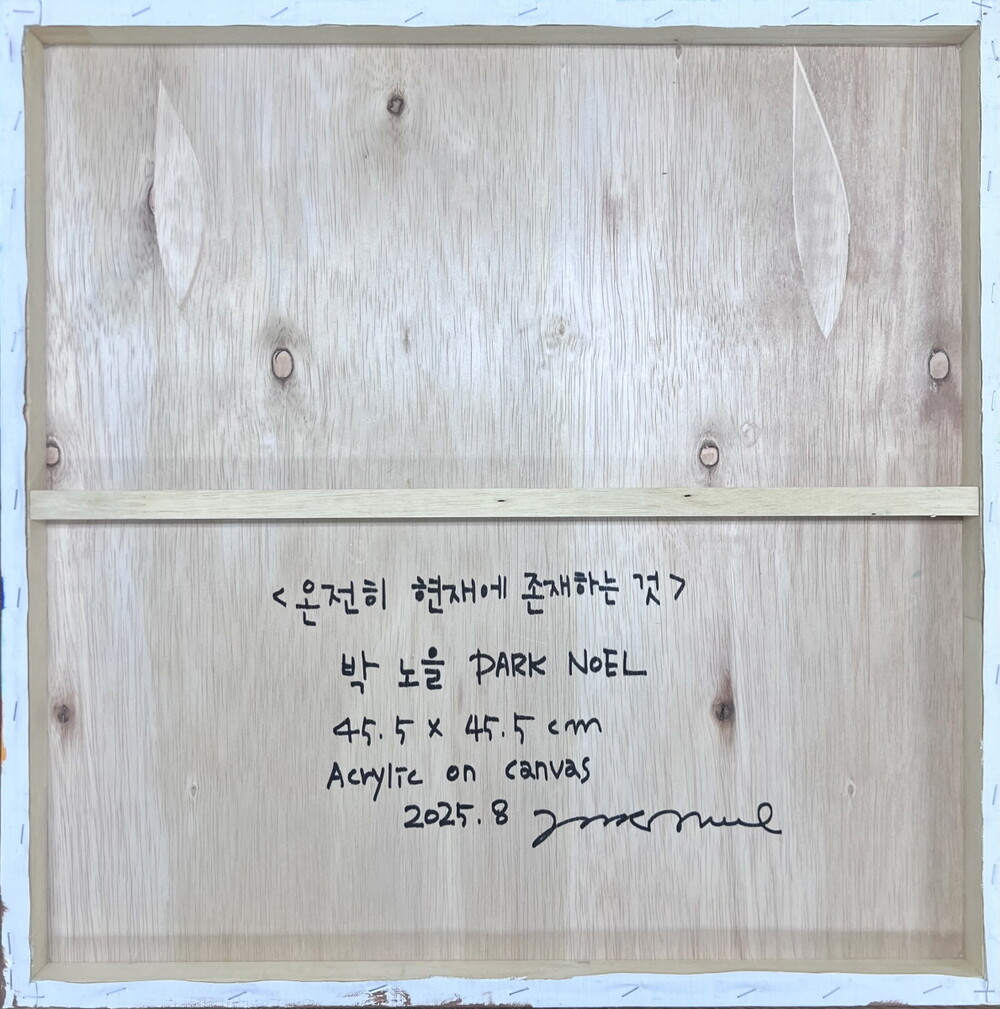 <온전히 현재에 존재하는 것>
박 노을 PARK NOEL
45.5 x 45.5 cm
Acrylic on canvas
2025.8